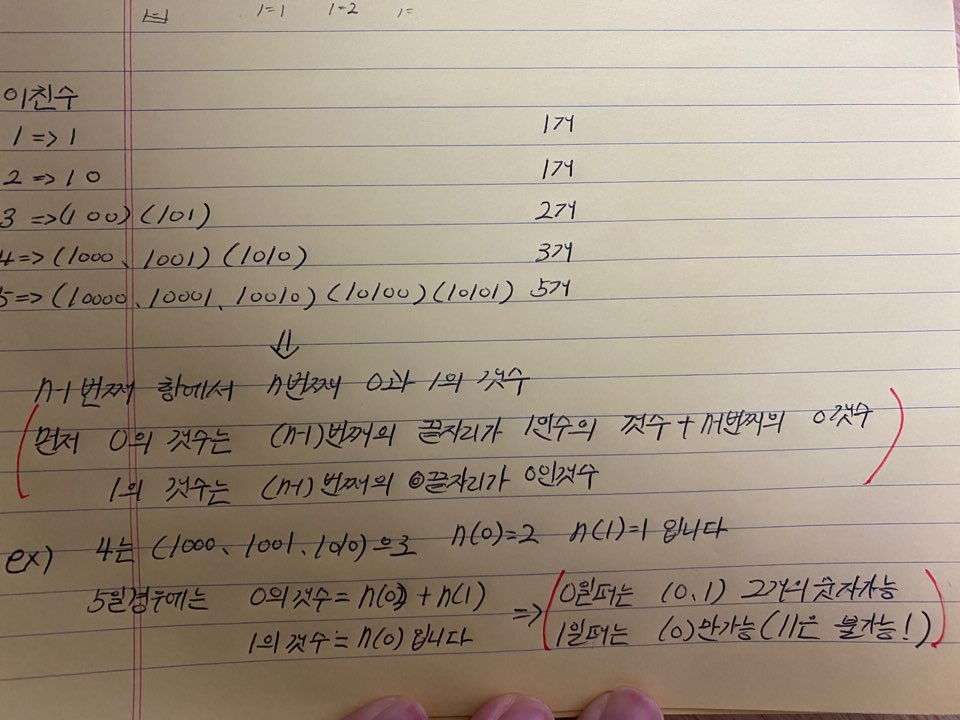 1=1 1=2 1=
이친수
1 => 1 1개
2 => 1 0 1개
3 => (1 0 0) (101) 2개
4 => (1000、1001) (1010) 3개
5 => (10000、10001、10010) (10100) (10101) 5개
⇓
n-1번째 항에서 n번째 0과 1의 갯수
(먼저 0의 갯수는 (n-1)번째의 끝자리가 1인수의 갯수 + n-1번째의 0갯수
1의 갯수는 (n-1)번째의 끝자리가 0인갯수)
ex) 4는 (1000、1001、1010)으로 n(0)=2 n(1)=1 입니다
5일경우에는 0의갯수 = n(0) + n(1) => (0일때는 (0、1) 2개의 숫자가능
1의갯수 = n(0) 입니다 1일때는 (0)만가능(11은 불가능!))